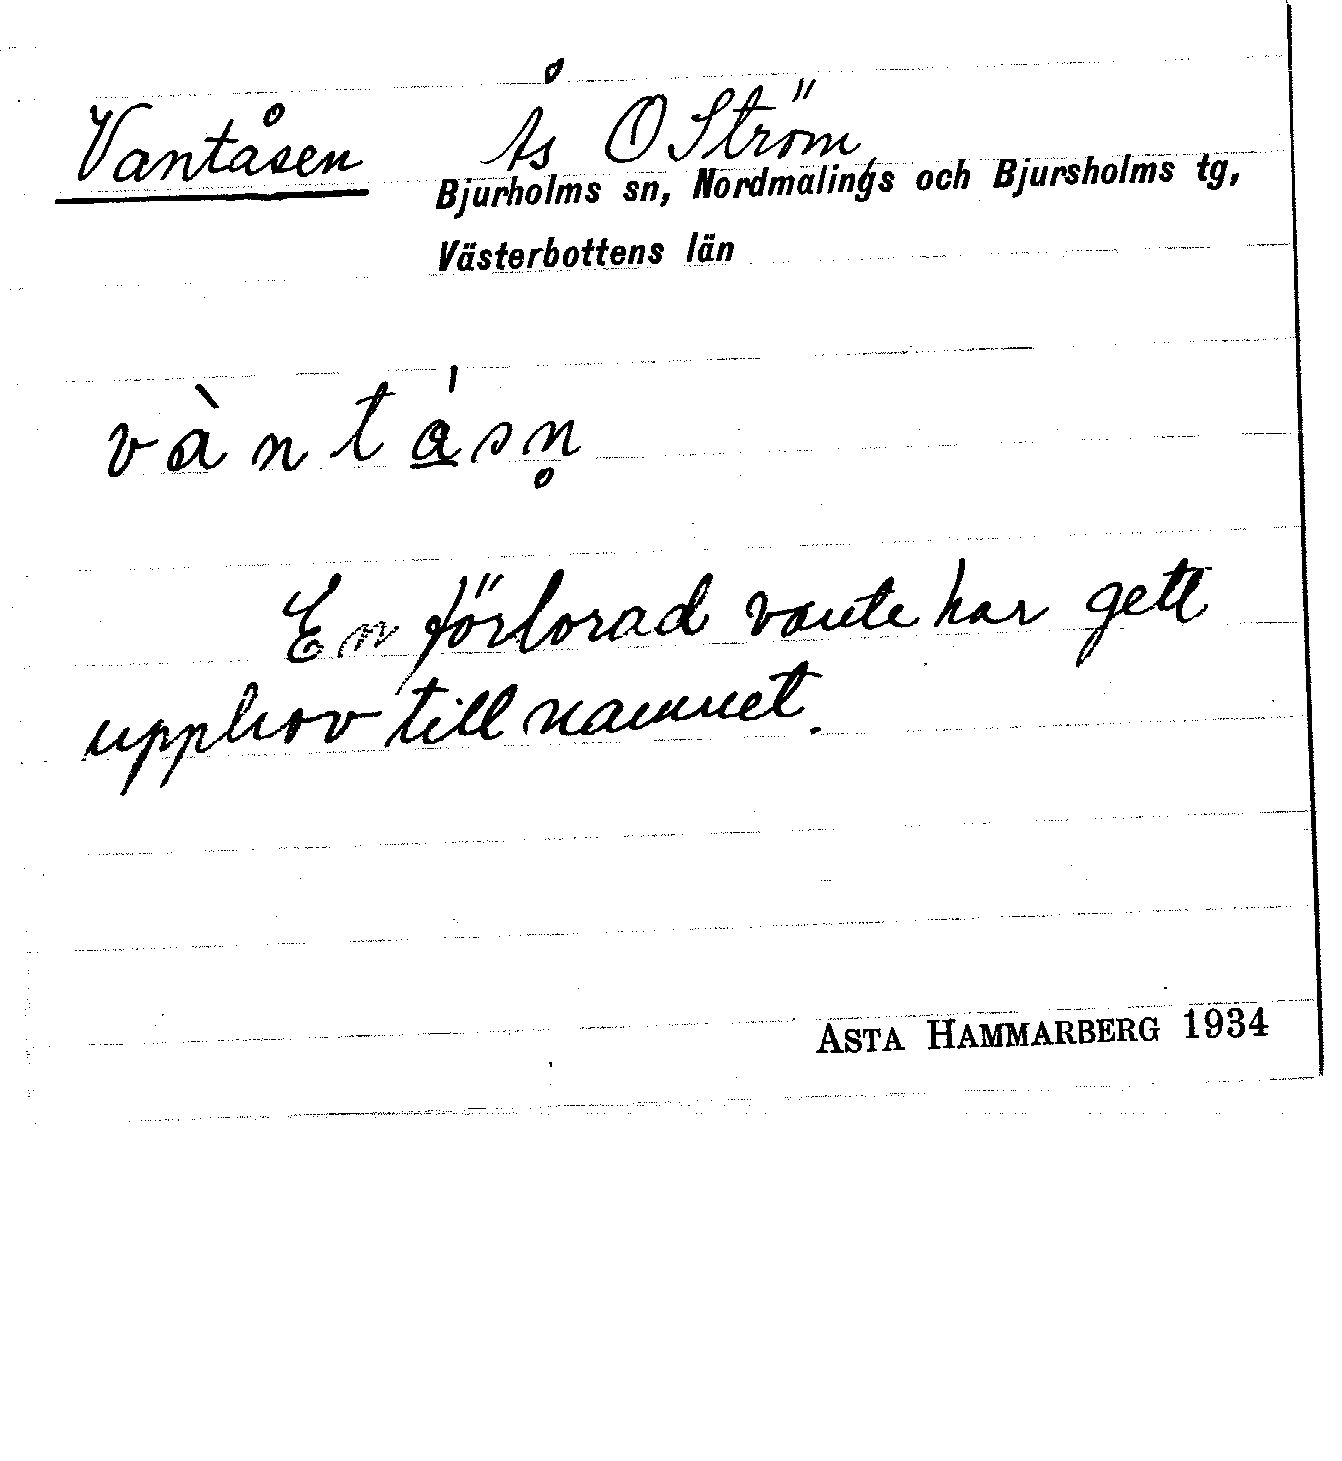 Vantåsen Ås O Ström
Bjurholms sn, Nordmalings och Bjursholms tg,
Västerbottens län
vàntá̲sn̥
En förlorad vante har gett
upphov till namnet.
ASTA HAMMARBERG 1934